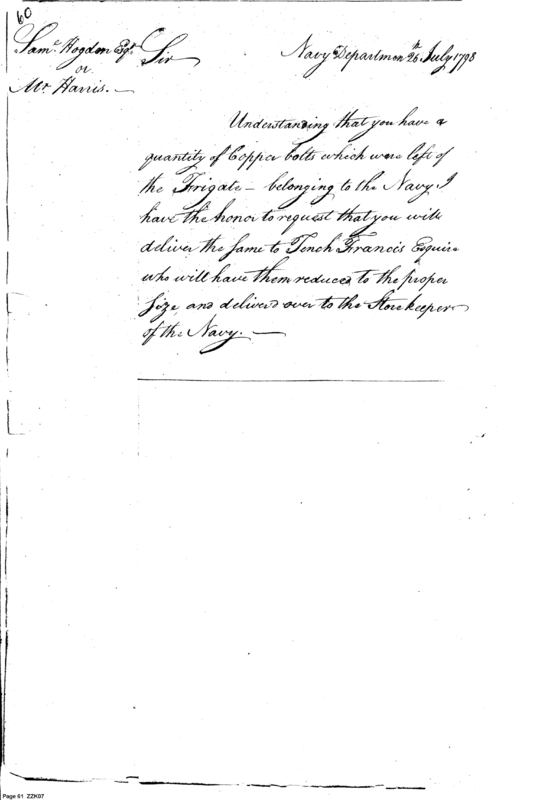 60
Saml. Hogdon Esqr.
or
Mr. Harris. —
Sir
Navy Department 26th July 1798
Understanding that you have a
quantity of Copper bolts which were left of
the Frigate — belonging to the Navy, I
have the honor to request that you will
deliver the same to Tench Francis Esquire
who will have them reduced to the proper
size, and delivered over to the Storekeeper
of the Navy. —
Page 61 ZZK07